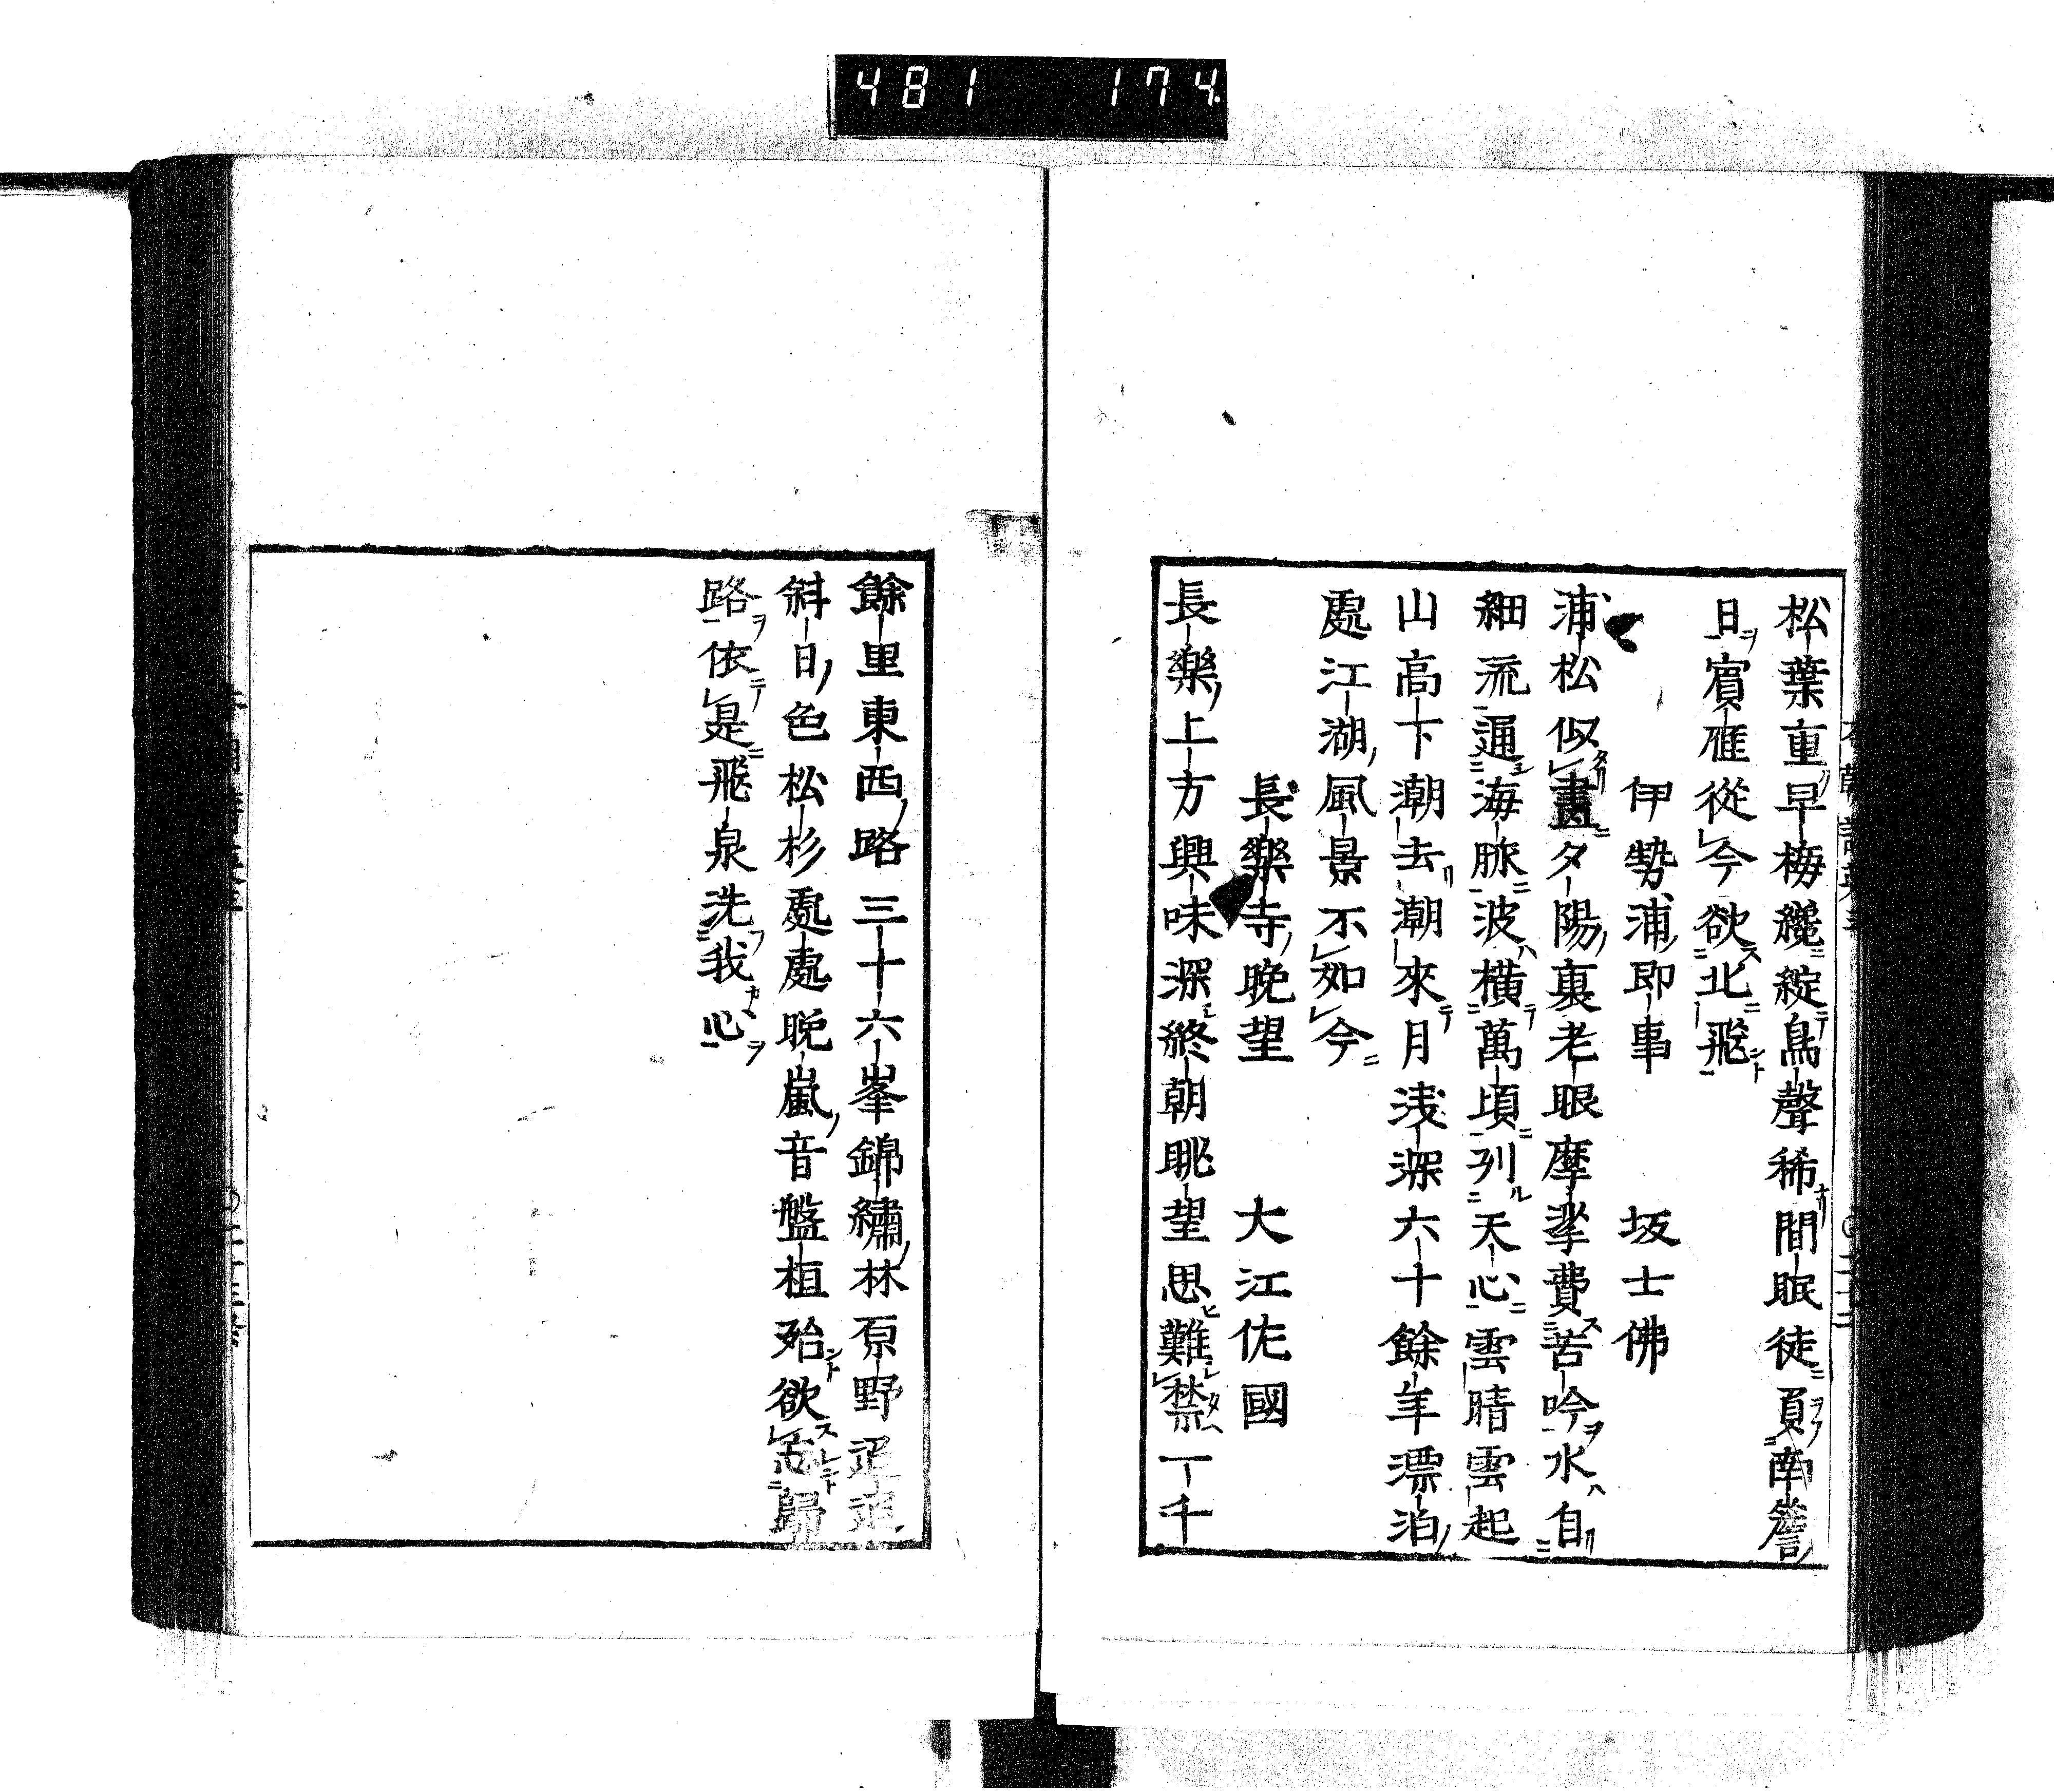 481 174
松葉重早梅纔綻鳥聲稀間眠徒負南簷
日賓雁從今欲北飛
伊勢浦即事 坂士佛
浦松似畫夕陽裏老眼摩挲費苦吟水自
細流通海脉波横萬頃列天心雲晴雲起
山高下潮去潮來月浅深六十餘年漂泊
處江湖風景不如今
長樂寺晩望 大江佐國
長樂上方興味深終朝眺望思難禁一千
餘里東西路三十六峯錦繡林原野迢迢
斜日色松杉處處晩嵐音盤桓殆欲忘歸
路依是飛泉洗我心